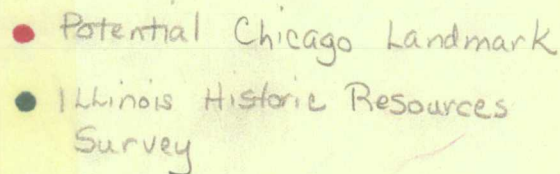 Potential Chicago Landmark
Illinois Historic Resources
Survey